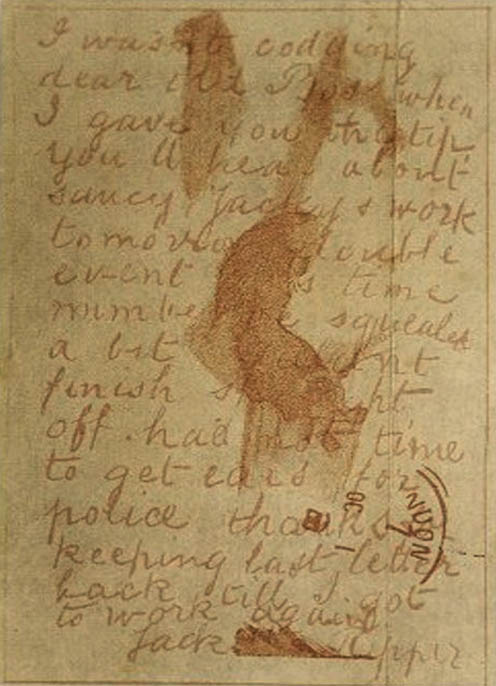 I wasn't codding
dear old Boss when
I gave you the tip
you'll hear about
saucy Jacky s work
tomorrow double
event this time
number one squealed
a bit couldn't
finish straight
off. had not time
to get ears for
police thanks for
keeping last letter
back till I got
to work again.
Jack the Ripper
OC 1